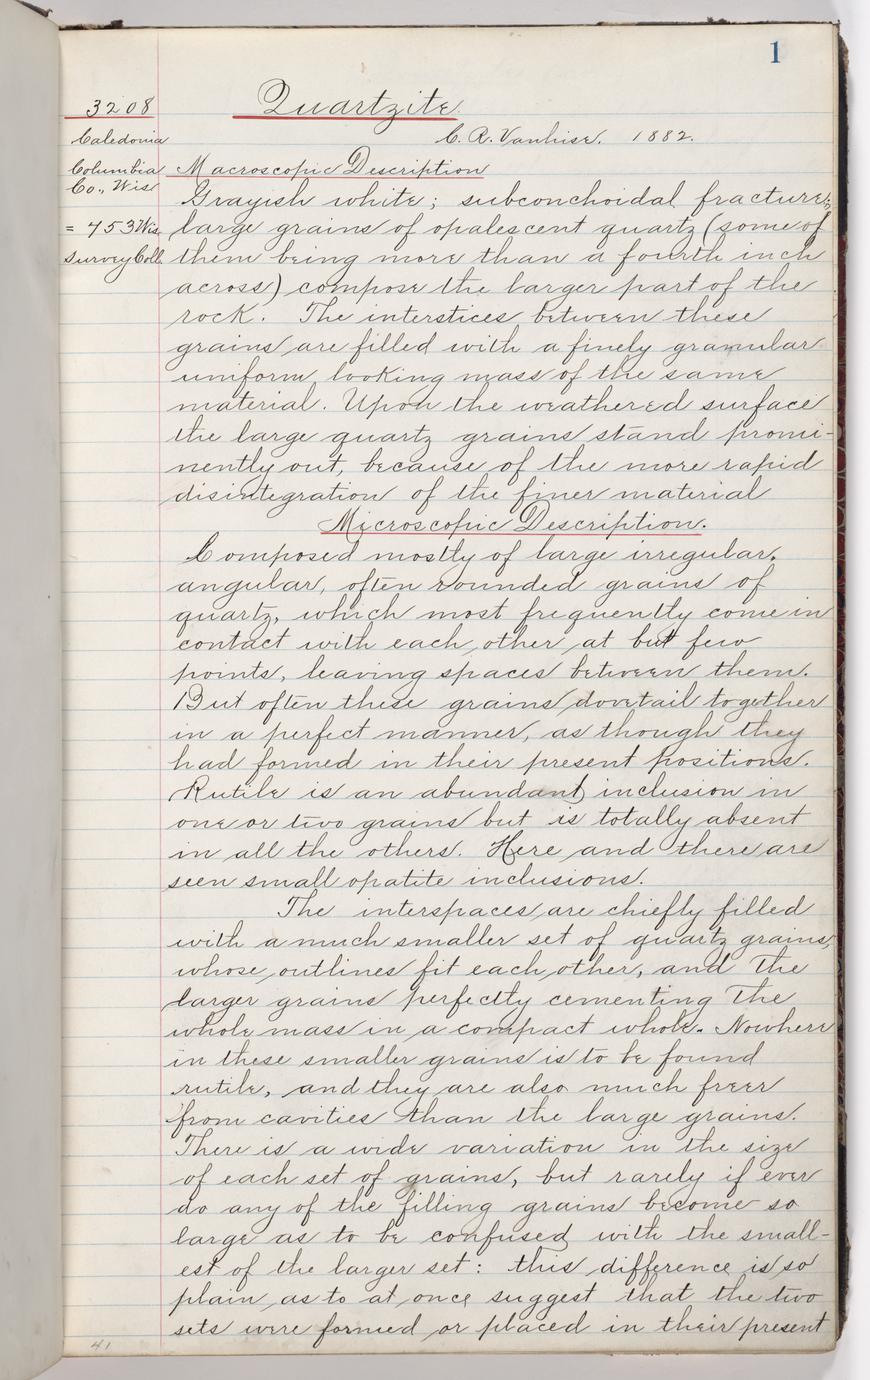 1
3208
Quartzite
Caledonia
C. R. Vanhise. 1882.
Columbia
Co., Wis
= 453 Wis
Survey Coll.
Macroscopic Description
Grayish white; subconchoidal fracture;
large grains of opalescent quartz (some of
them being more than a fourth inch
across) compose the larger part of the
rock. The interstices between these
grains are filled with a finely granular
uniform looking mass of the same
material. Upon the weathered surface
the large quartz grains stand promi-
nently out, because of the more rapid
disintegration of the finer material
Microscopic Description.
Composed mostly of large irregular,
angular, often rounded grains of
quartz, which most frequently come in
contact with each other at but few
points, leaving spaces between them.
But often these grains dovetail together
in a perfect manner, as though they
had formed in their present positions.
Rutile is an abundant inclusion in
one or two grains but is totally absent
in all the others. Here and there are
seen small apatite inclusions.
The interspaces are chiefly filled
with a much smaller set of quartz grains,
whose outlines fit each other, and the
larger grains perfectly cementing the
whole mass in a compact whole. Nowhere
in these smaller grains is to be found
rutile, and they are also much freer
from cavities than the large grains.
There is a wide variation in the size
of each set of grains, but rarely if ever
do any of the filling grains become so
large as to be confused with the small-
est of the larger set: this difference is so
plain as to at once suggest that the two
sets were formed or placed in their present
41